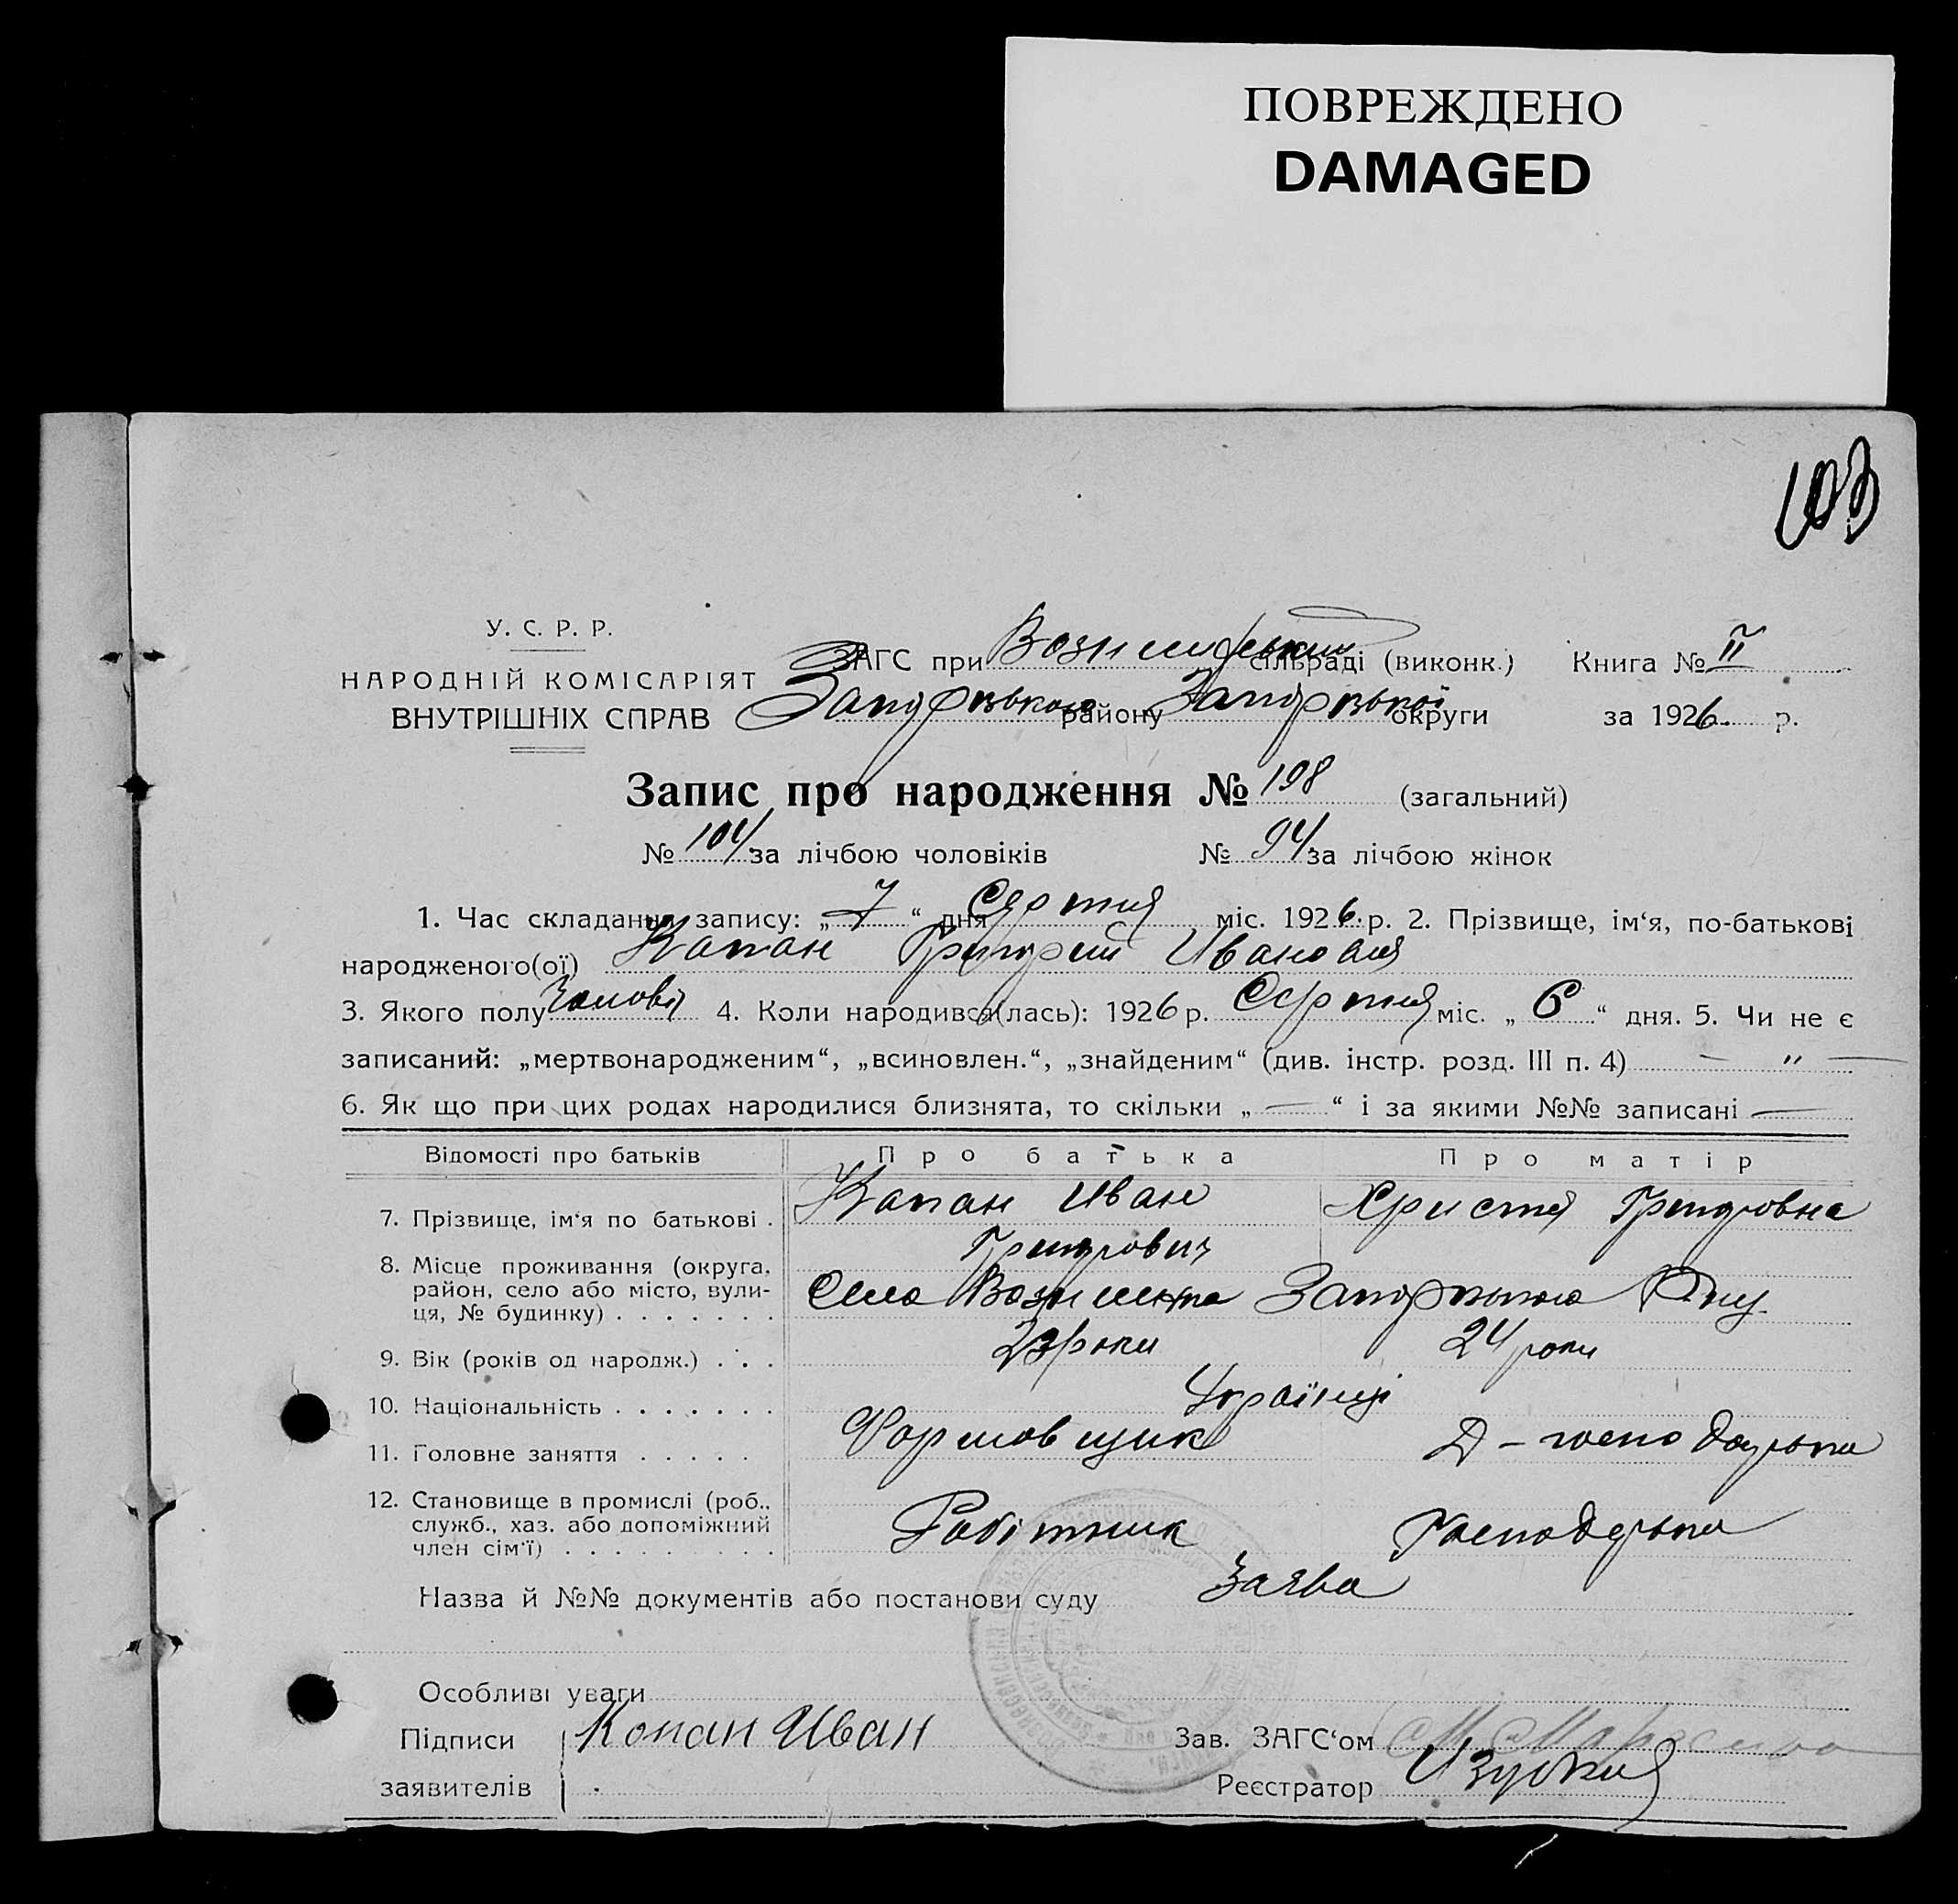 ПОВРЕЖДЕНО
DAMAGED
103
У. С. Р. Р.
НАРОДНІЙ КОМІСАРІЯТ
ВНУТРІШНІХ СПРАВ
ЗАГС при сільраді (виконк.) Книга № II
Запорізького району Запорізької округи за 1926 р.
Запис про народження № 198 (загальний)
№ 104 за лічбою чоловіків № 94 за лічбою жінок
1. Час складання запису: „ 7 “ дня Серпня міс. 1926 р. 2. Прізвище, ім‘я, по-батькові
народженого(ої) Капан Григорий Иванович
3. Якого полу 4. Коли народився(лась): 1926 р. Серпня міс. „ 6 “ дня. 5. Чи не є
записаний: „мертвонародженим“, „всиновлен.“, „знайденим“ (див. інстр. розд. III п. 4) — " —
6. Як що при цих родах народилися близнята, то скільки „ — “ і за якими №№ записані —
Відомості про батьків Про батька Про матір
7. Прізвище, ім‘я по батькові . Капан Иван Григорович Христя Григоровна
8. Місце проживання (округа, район, село або місто, вулиця, № будинку) . . . . . . . Село Запорізького
9. Вік (років од народж.) . . . 23 роки 24 роки
10. Національність . . . . . . . Українці
11. Головне заняття . . . . . Формовщик Д – господарька
12. Становище в промислі (роб., служб., хаз. або допоміжний член сім‘ї) . . . . . . . . . Робітник Господарька
Назва й №№ документів або постанови суду Заява
Особливі уваги
Підписи Копан Иван Зав. ЗАГС‘ом
заявителів Реєстратор